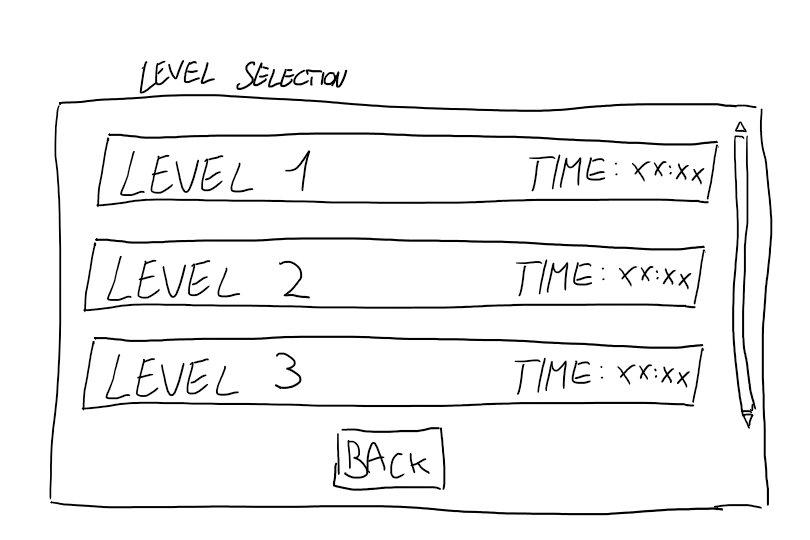 LEVEL SELECTION
LEVEL 1 TIME: xx:xx
LEVEL 2 TIME: xx:xx
LEVEL 3 TIME: xx:xx
BACK